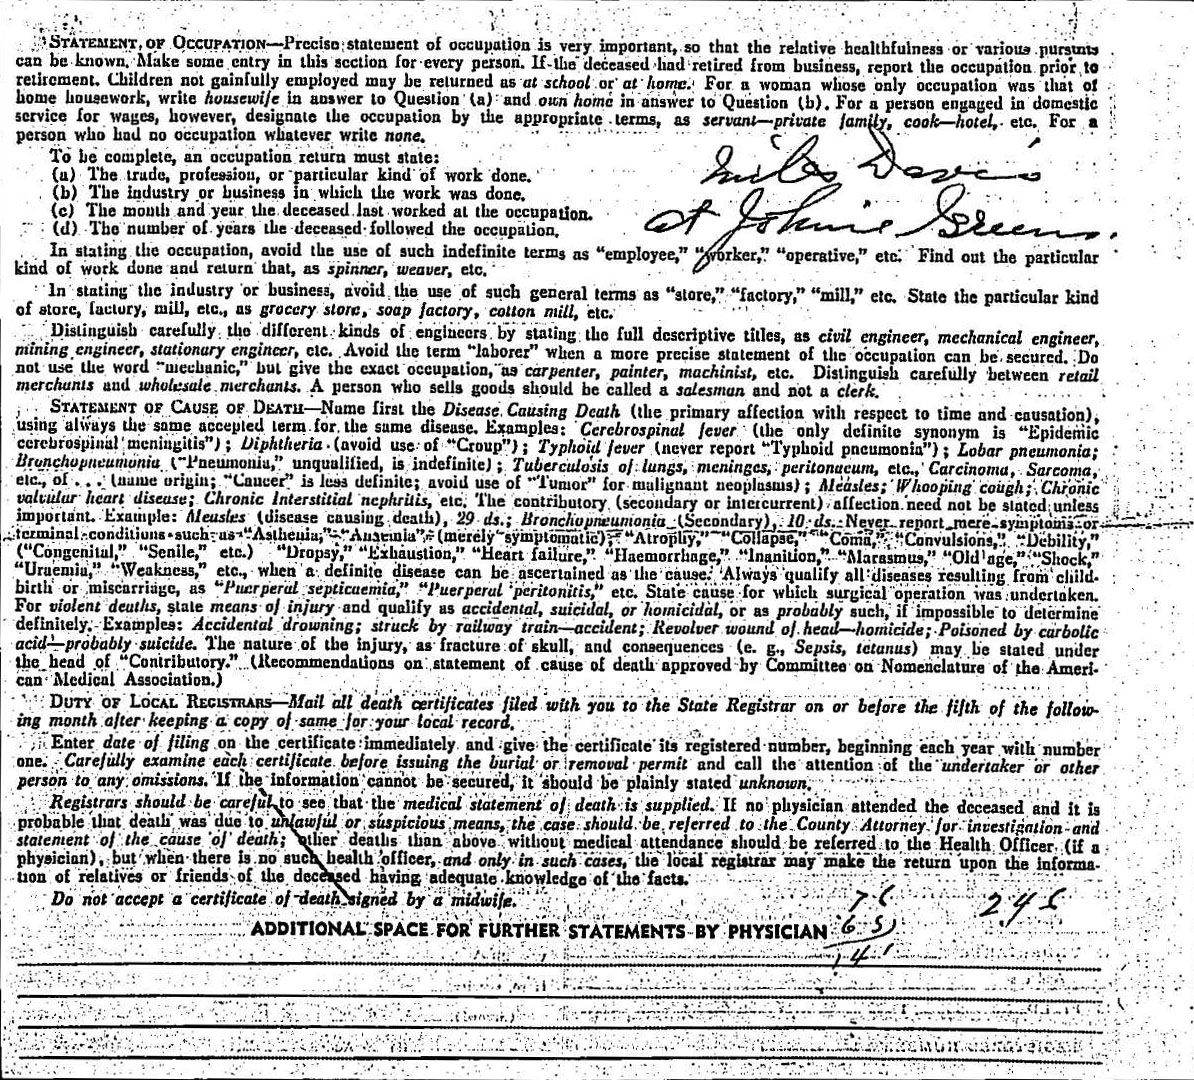 STATEMENT OF OCCUPATION—Precise statement of occupation is very important, so that the relative healthfulness or various pursuits
can be known. Make some entry in this section for every person. If the deceased had retired from business, report the occupation prior to
retirement. Children not gainfully employed may be returned as at school or at home. For a woman whose only occupation was that of
home housework, write housewife in answer to Question (a) and own home in answer to Question (b). For a person engaged in domestic
service for wages, however, designate the occupation by the appropriate terms, as servant—private family, cook—hotel, etc. For a
person who had no occupation whatever write none.
To be complete, an occupation return must state:
(a) The trade, profession, or particular kind of work done.
(b) The industry or business in which the work was done.
(c) The month and year the deceased last worked at the occupation.
(d) The number of years the deceased followed the occupation.
Miles Davis
at Johnie Greens.
In stating the occupation, avoid the use of such indefinite terms as "employee," "worker," "operative," etc. Find out the particular
kind of work done and return that, as spinner, weaver, etc.
In stating the industry or business, avoid the use of such general terms as "store," "factory," "mill," etc. State the particular kind
of store, factory, mill, etc., as grocery store, soap factory, cotton mill, etc.
Distinguish carefully the different kinds of engineers by stating the full descriptive titles, as civil engineer, mechanical engineer,
mining engineer, stationary engineer, etc. Avoid the term "laborer" when a more precise statement of the occupation can be secured. Do
not use the word "mechanic," but give the exact occupation, as carpenter, painter, machinist, etc. Distinguish carefully between retail
merchants and wholesale merchants. A person who sells goods should be called a salesman and not a clerk.
STATEMENT OF CAUSE OF DEATH—Name first the Disease Causing Death (the primary affection with respect to time and causation),
using always the same accepted term for the same disease. Examples: Cerebrospinal fever (the only definite synonym is "Epidemic
cerebrospinal meningitis"); Diphtheria (avoid use of "Croup"); Typhoid fever (never report "Typhoid pneumonia"); Lobar pneumonia;
Bronchopneumonia ("Pneumonia," unqualified, is indefinite); Tuberculosis of lungs, meninges, peritonaeum, etc., Carcinoma, Sarcoma,
etc., of . . . (name origin; "Cancer" is less definite; avoid use of "Tumor" for malignant neoplasms); Measles; Whooping cough; Chronic
valvular heart disease; Chronic Interstitial nephritis, etc. The contributory (secondary or intercurrent) affection need not be stated unless
important. Example: Measles (disease causing death), 29 ds.; Bronchopneumonia (Secondary), 10 ds. Never report mere symptoms or
terminal conditions such as "Asthenia," "Anaemia" (merely symptomatic), "Atrophy," "Collapse," "Coma," "Convulsions," "Debility,"
("Congenital," "Senile," etc.) "Dropsy," "Exhaustion," "Heart failure," "Haemorrhage," "Inanition," "Marasmus," "Old age," "Shock,"
"Uraemia," "Weakness," etc., when a definite disease can be ascertained as the cause. Always qualify all diseases resulting from child-
birth or miscarriage, as "Puerperal septicaemia," "Puerperal peritonitis," etc. State cause for which surgical operation was undertaken.
For violent deaths, state means of injury and qualify as accidental, suicidal, or homicidal, or as probably such, if impossible to determine
definitely. Examples: Accidental drowning; struck by railway train—accident; Revolver wound of head—homicide; Poisoned by carbolic
acid—probably suicide. The nature of the injury, as fracture of skull, and consequences (e. g., Sepsis, tetanus) may be stated under
the head of "Contributory." (Recommendations on statement of cause of death approved by Committee on Nomenclature of the Ameri-
can Medical Association.)
DUTY OF LOCAL REGISTRARS—Mail all death certificates filed with you to the State Registrar on or before the fifth of the follow-
ing month after keeping a copy of same for your local record.
Enter date of filing on the certificate immediately and give the certificate its registered number, beginning each year with number
one. Carefully examine each certificate before issuing the burial or removal permit and call the attention of the undertaker or other
person to any omissions. If the information cannot be secured, it should be plainly stated unknown.
Registrars should be careful to see that the medical statement of death is supplied. If no physician attended the deceased and it is
probable that death was due to unlawful or suspicious means, the case should be referred to the County Attorney for investigation and
statement of the cause of death; other deaths than above without medical attendance should be referred to the Health Officer (if a
physician), but when there is no such health officer, and only in such cases, the local registrar may make the return upon the informa-
tion of relatives or friends of the deceased having adequate knowledge of the facts.
Do not accept a certificate of death signed by a midwife.
ADDITIONAL SPACE FOR FURTHER STATEMENTS BY PHYSICIAN